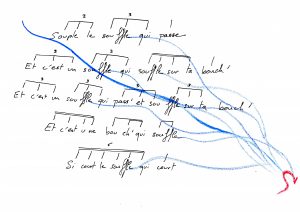 2 3
Souple le souffle qui passe
3 3
Et c'est un souffle qui souffle sur ta bouch'
Et c'est un souffle qui pass' et souffle sur ta bouch'
Et c'est une bouch' qui souffle
Si court le souffle qui court